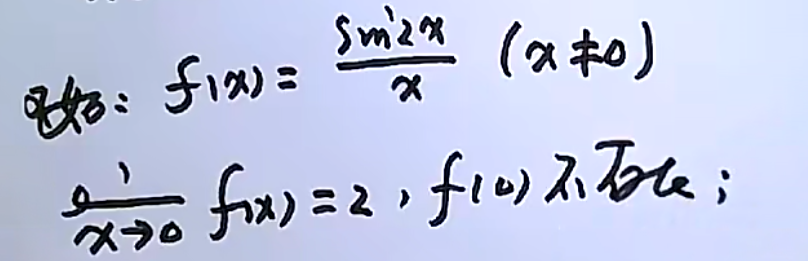 如: f(x) = sin2x/x (x≠0)
lim x→0 f(x) = 2, f(0) 不存在;